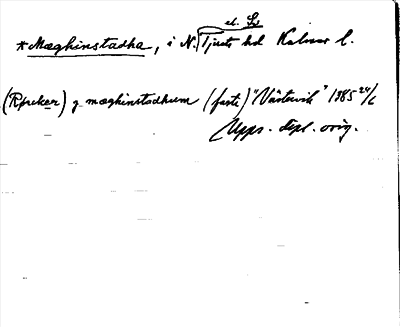 el. S.
*Mæghinstadha, i N. Tjusts hd Kalmar l.
(Rpreker) j mæghinstadhum (fasti) "Västervik" 1385 24/6
Upps. dipl. orig.